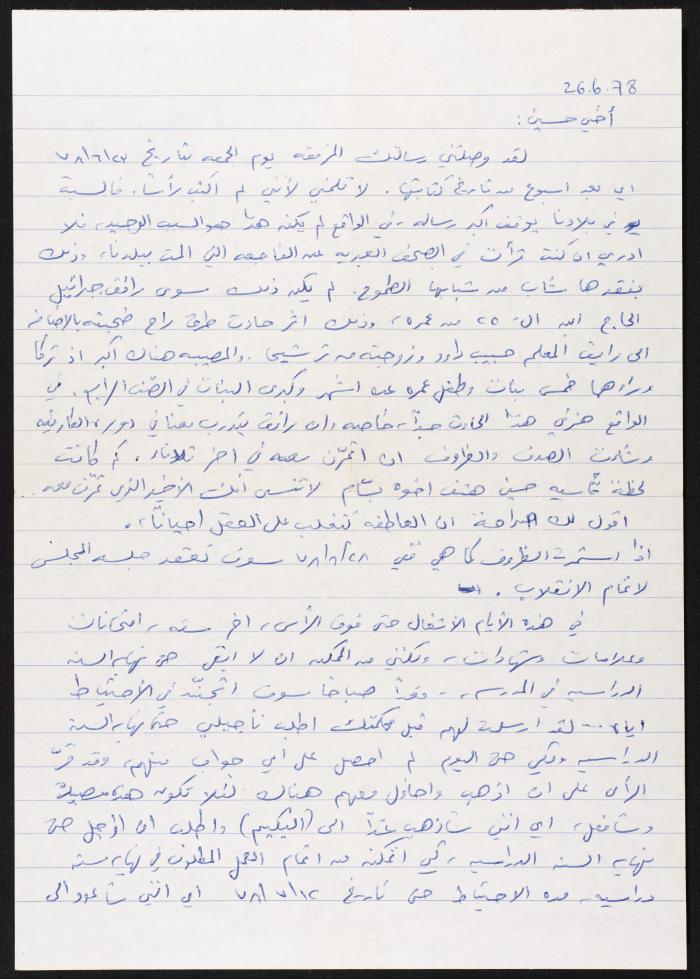 26.6.78
أخي حسين:
لقد وصلتني رسالتك المرفقه يوم الجمعه بتاريخ ٧٨/٦/٢٣
اي بعد اسبوع من تاريخ كتابتها. لا تلمني لأنني لم اكتب رأساً. فالسبت
في بلادنا يوقف اكبر رساله، في الواقع لم يكن هذا هو السبب الوحيد، فلا
ادري ان كنت قرأت في الصحف العبريه عن الفاجعه التي المت ببلدنا، وذلك
بفقدها شاب من شبابها الطموح. لم يكن ذلك سوى رائق جبرائيل
الحاج ابن ال- ٢٥ من عمره، وذلك اثر حادث طرق راح ضحيته بالاضافه
الى رايق المعلم حبيب داود وزوجته من ترشيحا. والمصيبه هناك اكبر اذ تركا
وراءهما خمس بنات وطفل عمره عده اشهر وكبرى البنات في الصّف الرابع. في
الواقع هزني هذا الحادث جداً، خاصه وان رائق يتدرب معنا في دوره الكاراتيه
وشاءت الصدف والظروف ان اتمرّن معه في اخر ثلاثاء. كم كانت
لحظة قاسيه حسين هتف اخوه بسّام لا تنسى أنك الأخير الذي تمرّن معه..
اقول لك بصراحة ان العاطفه تتغلب على العقل احياناً،.
اذا استمرت الظروف كما هي ففي ٧٨/٦/٢٨ سوف تعقد جلسه المجلس
لاتمام الانقلاب.
في هذه الأيام الاشغال حتى فوق الرأس، اخر سنه، امتحانات
وعلامات وشهادات، ولكنني من الممكن ان لا ابقى حتى نهايه السنه
الدراسيه في المدرسه، - وغداً صباحا سوف اتجنّد في الأحتياط
لقد ارسلت لهم قبل اطلب تأجيلي حتى نهايه السنة
الدراسيه ولكن حتى اليوم لم احصل على أي جواب منهم، وقد قرّ
الرأي على ان اذهب واحاول معهم هناك لئلا تكون هذه مصيدة
وسأفعل، اي انني سأذهب غداً الى (البكييم) واطلب ان أؤجل حتى
نهايه السنه الدراسيه، كي اتمكن من اتمام العمل المطلوب في نهايه سنه
دراسيه، مده الاحتياط حتى تاريخ ٧٨/٧/١٢ اي انني سأعود الى